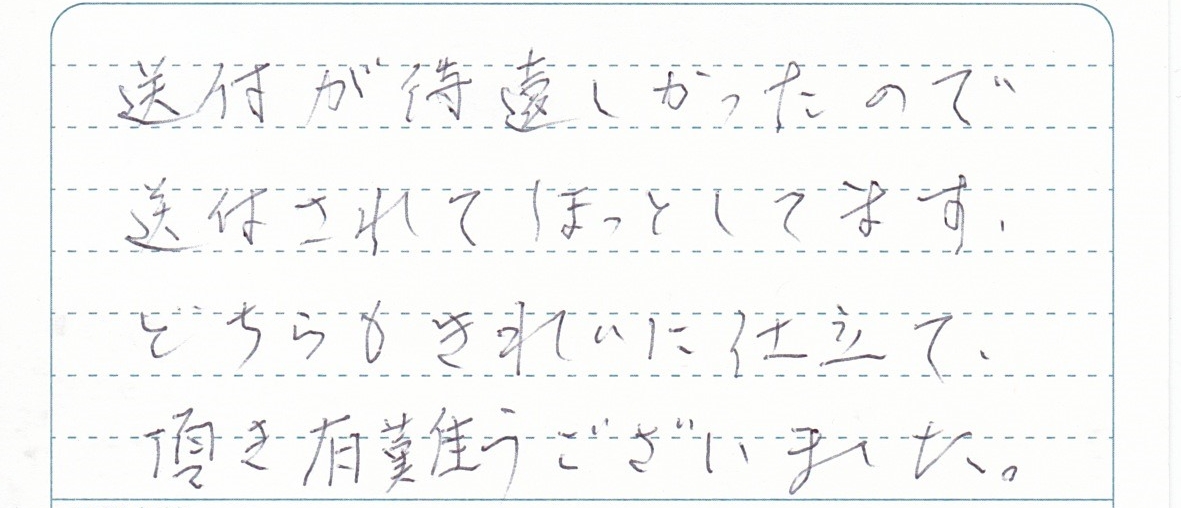 送付が待遠しかったので
送付されてほっとしてます、
どちらもきれいに仕立て、
頂き有難うございました。